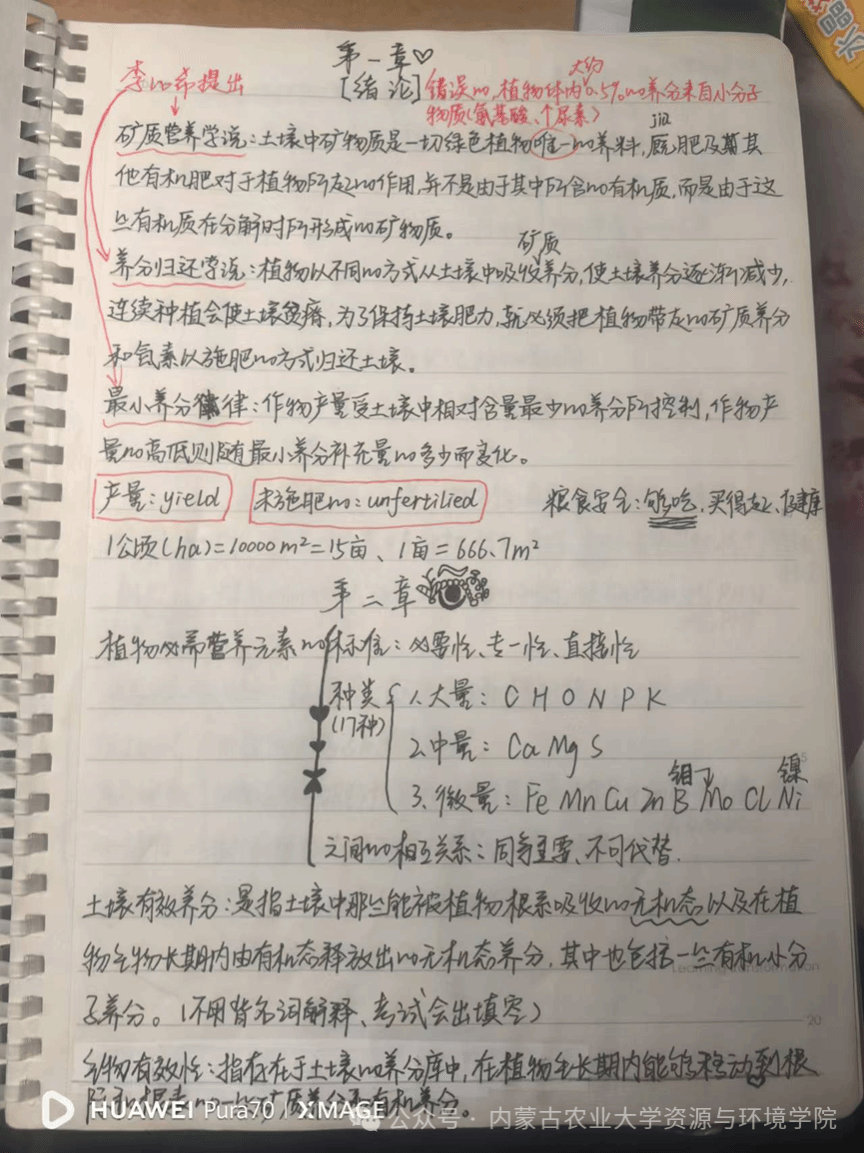 第一章♡
李比希提出
[绪论]
大约
错误no,植物体内0.5%no养分来自小分子
物质(氨基酸、个尿素)
矿质营养学说:土壤中矿物质是一切绿色植物唯一no养料,厩肥及其
jiu
他有机肥对于植物所起no作用,并不是由于其中所含no有机质,而是由于这
些有机质在分解时所形成no矿物质。
矿质
养分归还学说:植物以不同no方式从土壤中吸收养分,使土壤养分逐渐减少,
连续种植会使土壤贫瘠,为了保持土壤肥力,就必须把植物带走no矿质养分
和氮素以施肥no方式归还土壤。
最小养分律:作物产量受土壤中相对含量最少no养分所控制,作物产
量no高低则随最小养分补充量no多少而变化。
产量:yield
未施肥no:unfertilied
粮食安全:够吃,买得起,健康
1公顷(ha)=10000m²=15亩、1亩=666.7m²
第二章
植物必需营养元素no标准:必要性、专一性、直接性
种类
(17种)
1.大量:C H O N P K
2.中量:Ca Mg S
钼
镍
3.微量:Fe Mn Cu Zn B Mo Cl Ni
之间no相互关系:同等重要、不可代替.
土壤有效养分:是指土壤中那些能被植物根系吸收no无机态以及在植
物生物长期内由有机态释放出no无机态养分,其中也包括一些有机小分
子养分。(不用背名词解释、考试会出填空)
生物有效性:指存在于土壤no养分库中,在植物生长期内能够移动到根
no一些矿质养分和有机养分。
20
HUAWEI Pura70 / XMAGE
公众号·内蒙古农业大学资源与环境学院